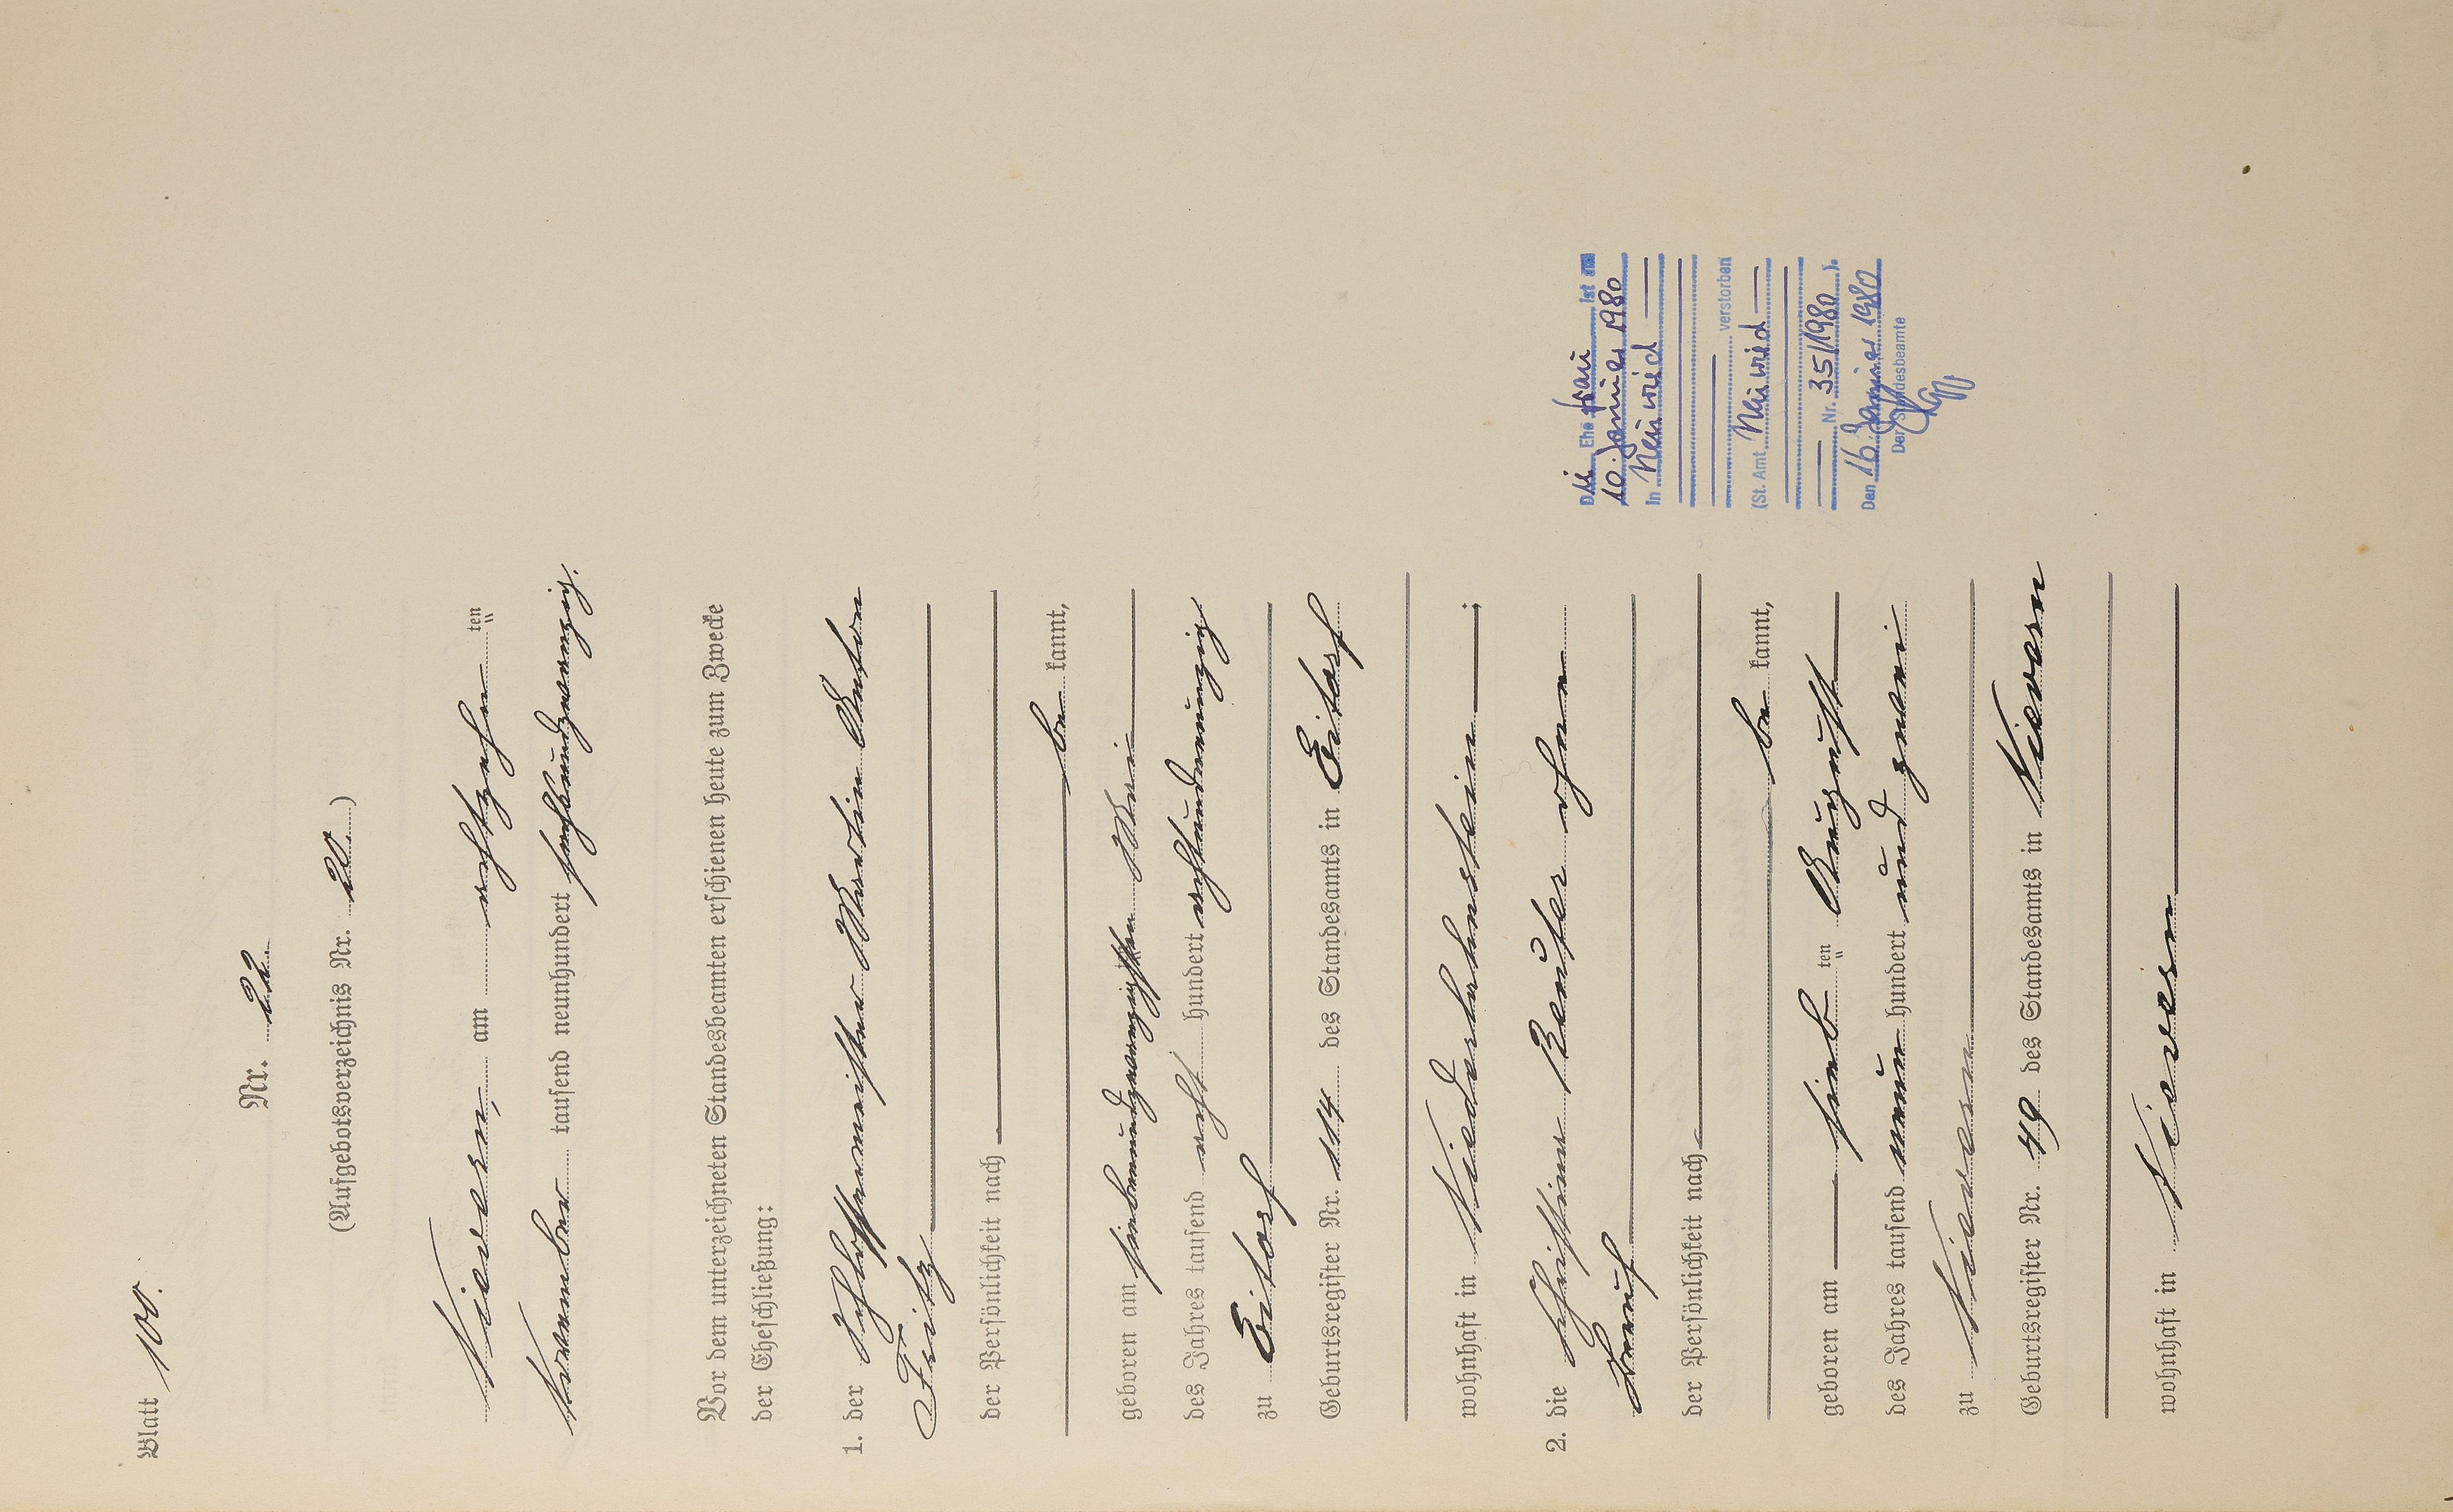 Blatt 100.
Nr. 22.
(Aufgebotsverzeichnis Nr. 20.)
Nievern, am achtzehn ten
November tausend neunhundert sechsundzwanzig.
Vor dem unterzeichneten Standesbeamten erschienen heute zum Zwecke
der Eheschließung:
1. der Schlossermeister Martin Anton
Feitz
der Persönlichkeit nach
be kannt,
geboren am siebenundzwanzigsten Mai
des Jahres tausend acht hundert achtundneunzig
zu Eitorf
Geburtsregister Nr. 114 des Standesamts in Eitorf
wohnhaft in Niederlahnstein ;
2. die Christine Reuter ohne
Beruf
der Persönlichkeit nach
be kannt,
geboren am sieb ten August
des Jahres tausend neun hundert und zwei
zu Nievern
Geburtsregister Nr. 49 des Standesamts in Nievern
wohnhaft in Nievern
Die Ehe frau ist am
10. Januar 1980
in Neuwied
verstorben
(St. Amt Neuwied
Nr. 35/1980 ).
Den 16. Januar 1980
Der Standesbeamte